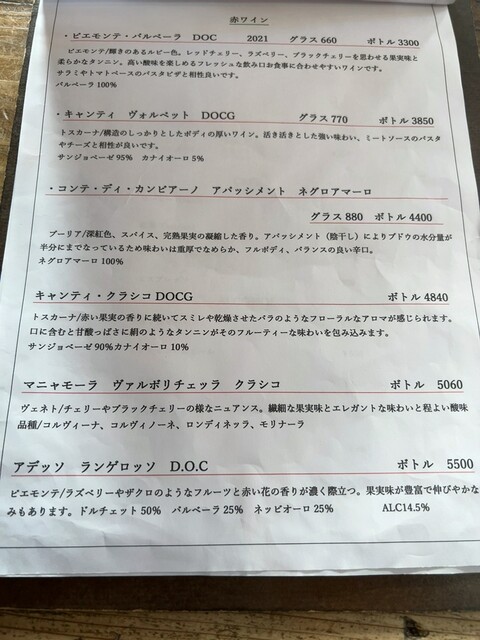 赤ワイン
・ピエモンテ・バルベーラ DOC 2021 グラス 660 ボトル 3300
ピエモンテ/輝きのあるルビー色。レッドチェリー、ラズベリー、ブラックチェリーを思わせる果実味と
柔らかなタンニン。高い酸味を楽しめるフレッシュな飲み口お食事に合わせやすいワインです。
サラミやトマトベースのパスタピザと相性良いです。
バルベーラ 100%
・キャンティ ヴォルペット DOCG グラス 770 ボトル 3850
トスカーナ/構造のしっかりとしたボディの厚いワイン。活き活きとした強い味わい、ミートソースのパスタ
やチーズと相性が良いです。
サンジョベーゼ 95% カナイオーロ 5%
・コンテ・ディ・カンピアーノ アパッシメント ネグロアマーロ
グラス 880 ボトル 4400
プーリア/深紅色、スパイス、完熟果実の凝縮した香り。アパッシメント（陰干し）によりブドウの水分量が
半分にまでなっているため味わいは重厚でなめらか、フルボディ、バランスの良い辛口。
ネグロアマーロ 100%
キャンティ・クラシコ DOCG ボトル 4840
トスカーナ/赤い果実の香りに続いてスミレや乾燥させたバラのようなフローラルなアロマが感じられます。
口に含むと甘酸っぱさに絹のようなタンニンがそのフルーティーな味わいを包み込みます。
サンジョベーゼ 90%カナイオーロ 10%
マニャモーラ ヴァルポリチェッラ クラシコ ボトル 5060
ヴェネト/チェリーやブラックチェリーの様なニュアンス。繊細な果実味とエレガントな味わいと程よい酸味
品種/コルヴィーナ、コルヴィノーネ、ロンディネッラ、モリナーラ
アデッソ ランゲロッソ D.O.C ボトル 5500
ピエモンテ/ラズベリーやザクロのようなフルーツと赤い花の香りが濃く際立つ。果実味が豊富で伸びやかな
みもあります。ドルチェット 50% バルベーラ 25% ネッビオーロ 25% ALC14.5%